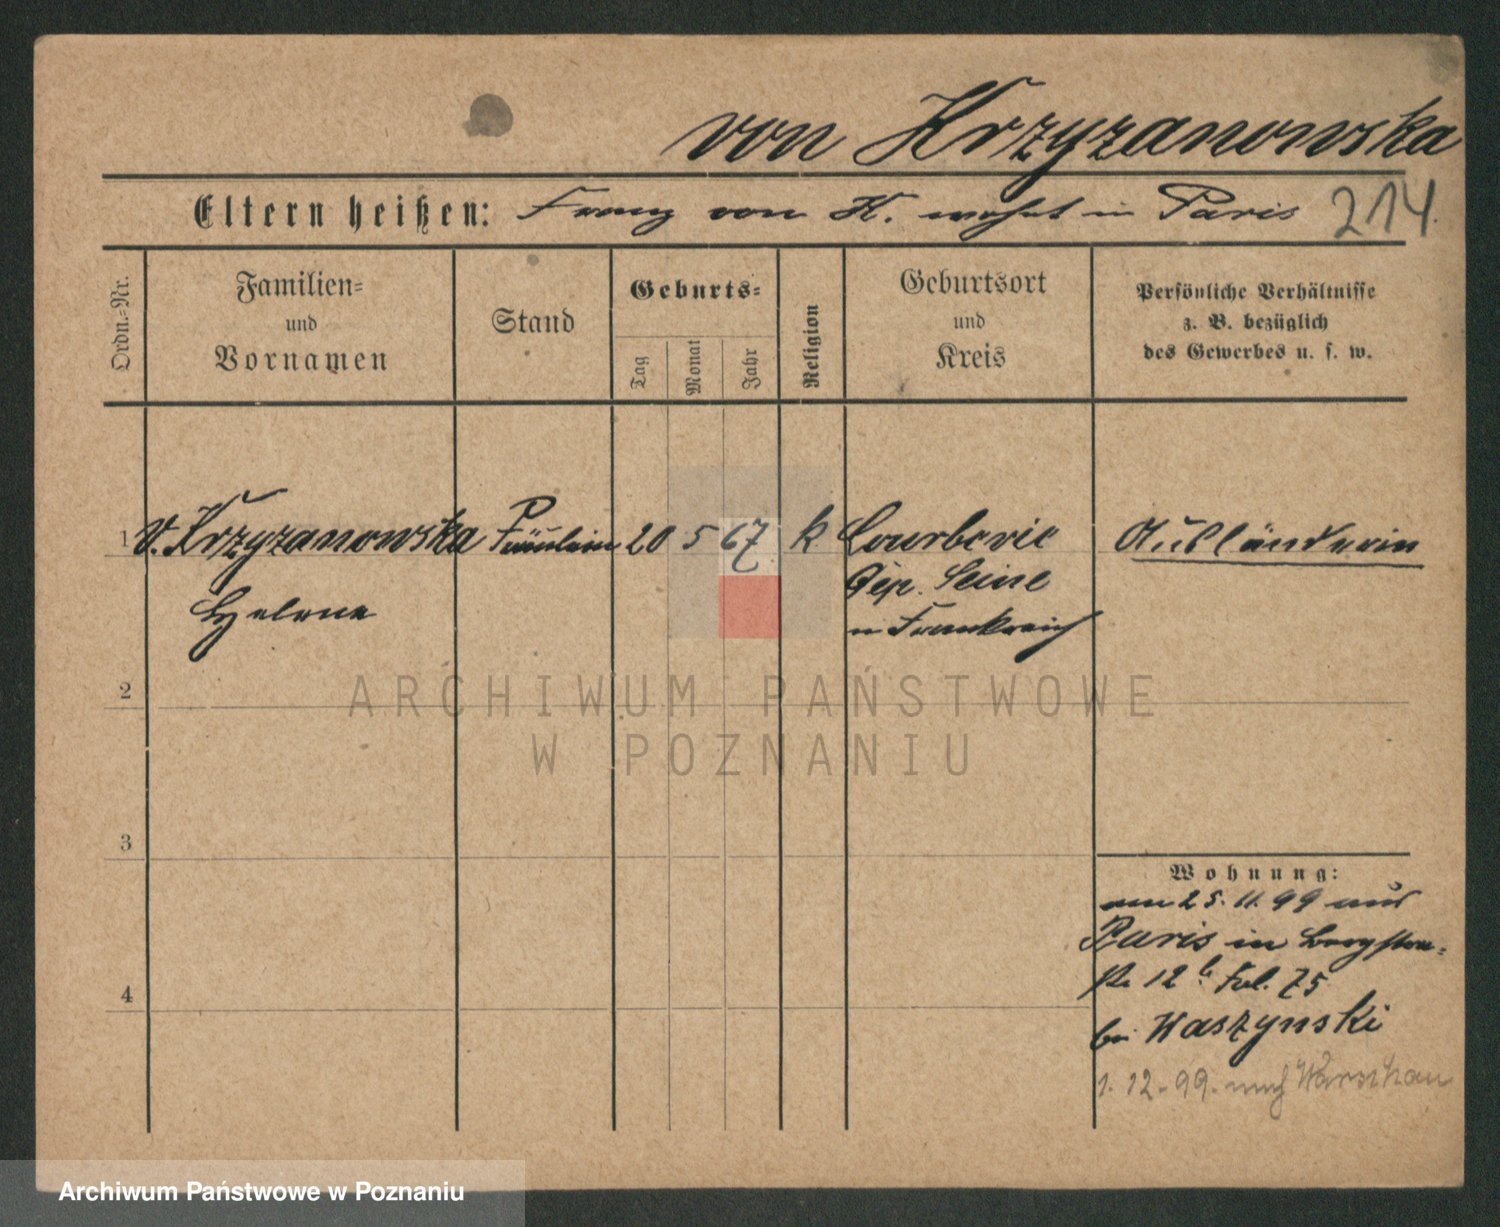 von Krzyzanowska
Eltern heißen: Franz von K. wohnt in Paris 214.
Ordn.-Nr.
Familien-
und
Vornamen
Stand
Geburts-
Tag
Monat
Jahr
Religion
Geburtsort
und
Kreis
Persönliche Verhältnisse
z. B. bezüglich
des Gewerbes u. s. w.
1 v. Krzyzanowska Fräulein 20 5 67 k Courbevie Ausländerin
Helene Dép. Seine
in Frankreich
2
ARCHIWUM PAŃSTWOWE
W POZNANIU
3
Wohnung:
am 25. 11. 99 aus
Paris in Bergstra-
ße 12 b Fol. 75
4
bei Waszynski
1. 12. 99. nach Warschau
Archiwum Państwowe w Poznaniu